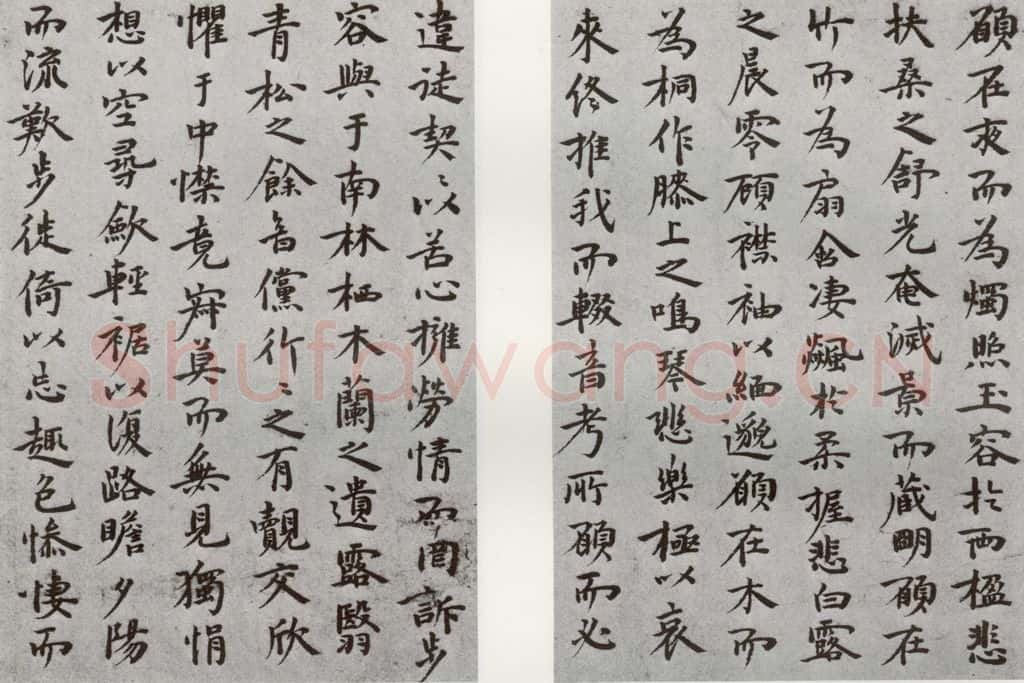 願在夜而為燭照玉容於兩楹悲
扶桑之舒光奄滅景而藏明願在
竹而為扇含凄飈於柔握悲白露
之晨零顧襟袖以緬邈願在木而
為桐作膝上之鳴琴悲樂極以哀
來終推我而輟音考所願而必
違徒契〻以苦心擁勞情而罔訴步
容與于南林栖木蘭之遺露翳
青松之餘音儻行〻之有覿交欣
懼于中襟竟寂莫而無見獨悁
想以空尋斂輕裾以復路瞻夕陽
而流歎步徙倚以忘趣色慘悽而
Shufawang.cn